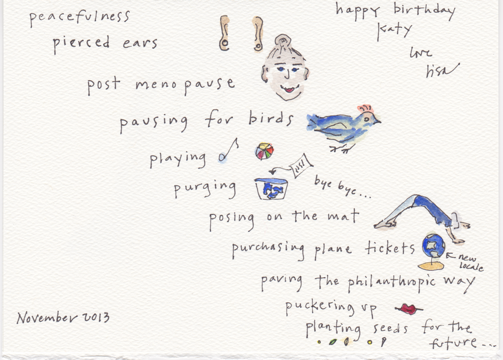 peacefulness
happy birthday
Katy
pierced ears
love
lisa
post menopause
pausing for birds
playing
purging
bye bye...
posing on the mat
purchasing plane tickets
new
locale
paving the philanthropic way
puckering up
November 2013
planting seeds for the
future...